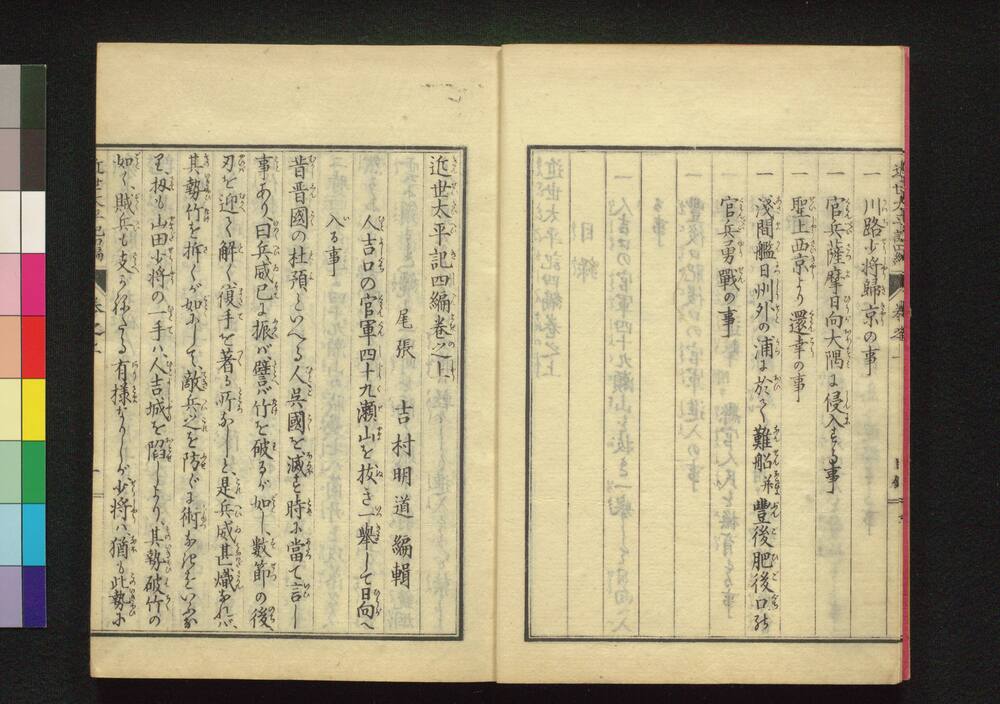 一 川路少将歸京の事
一 官兵薩摩日向大隅に侵入する事
一 聖上西京より還幸の事
一 淺間艦日州外の浦に於て難船并豐後肥後口の
官兵勇戰の事
近世太平記四編卷之上
尾張 吉村明道編輯
人吉口の官軍四十九瀬山を抜き一擧して日向へ
入る事
昔晋國の杜預といへる人呉國を滅す時に當て言し
事あり、曰兵威已に振バ譬バ竹を破るが如し、数節の後
刃を迎て解く復手を著る所なしと、是兵威甚熾なれバ
其勢竹を拆くが如にして敵兵之を防ぐに術なきをいふな
り、扨も山田少将の一手ハ人吉城を陷しより、其勢破竹の
如く、賊兵も支かねたる有様なりしが少将ハ猶も此勢に